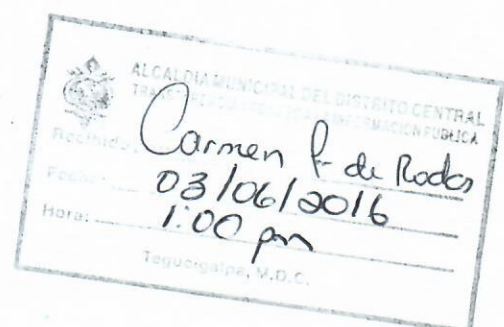 ALCALDIA MUNICIPAL DEL DISTRITO CENTRAL
TRANSPARENCIA INFORMACION PUBLICA
Recibido: Carmen de Rodas
Fecha: 03/06/2016
Hora: 1:00 pm
Tegucigalpa, M.D.C.